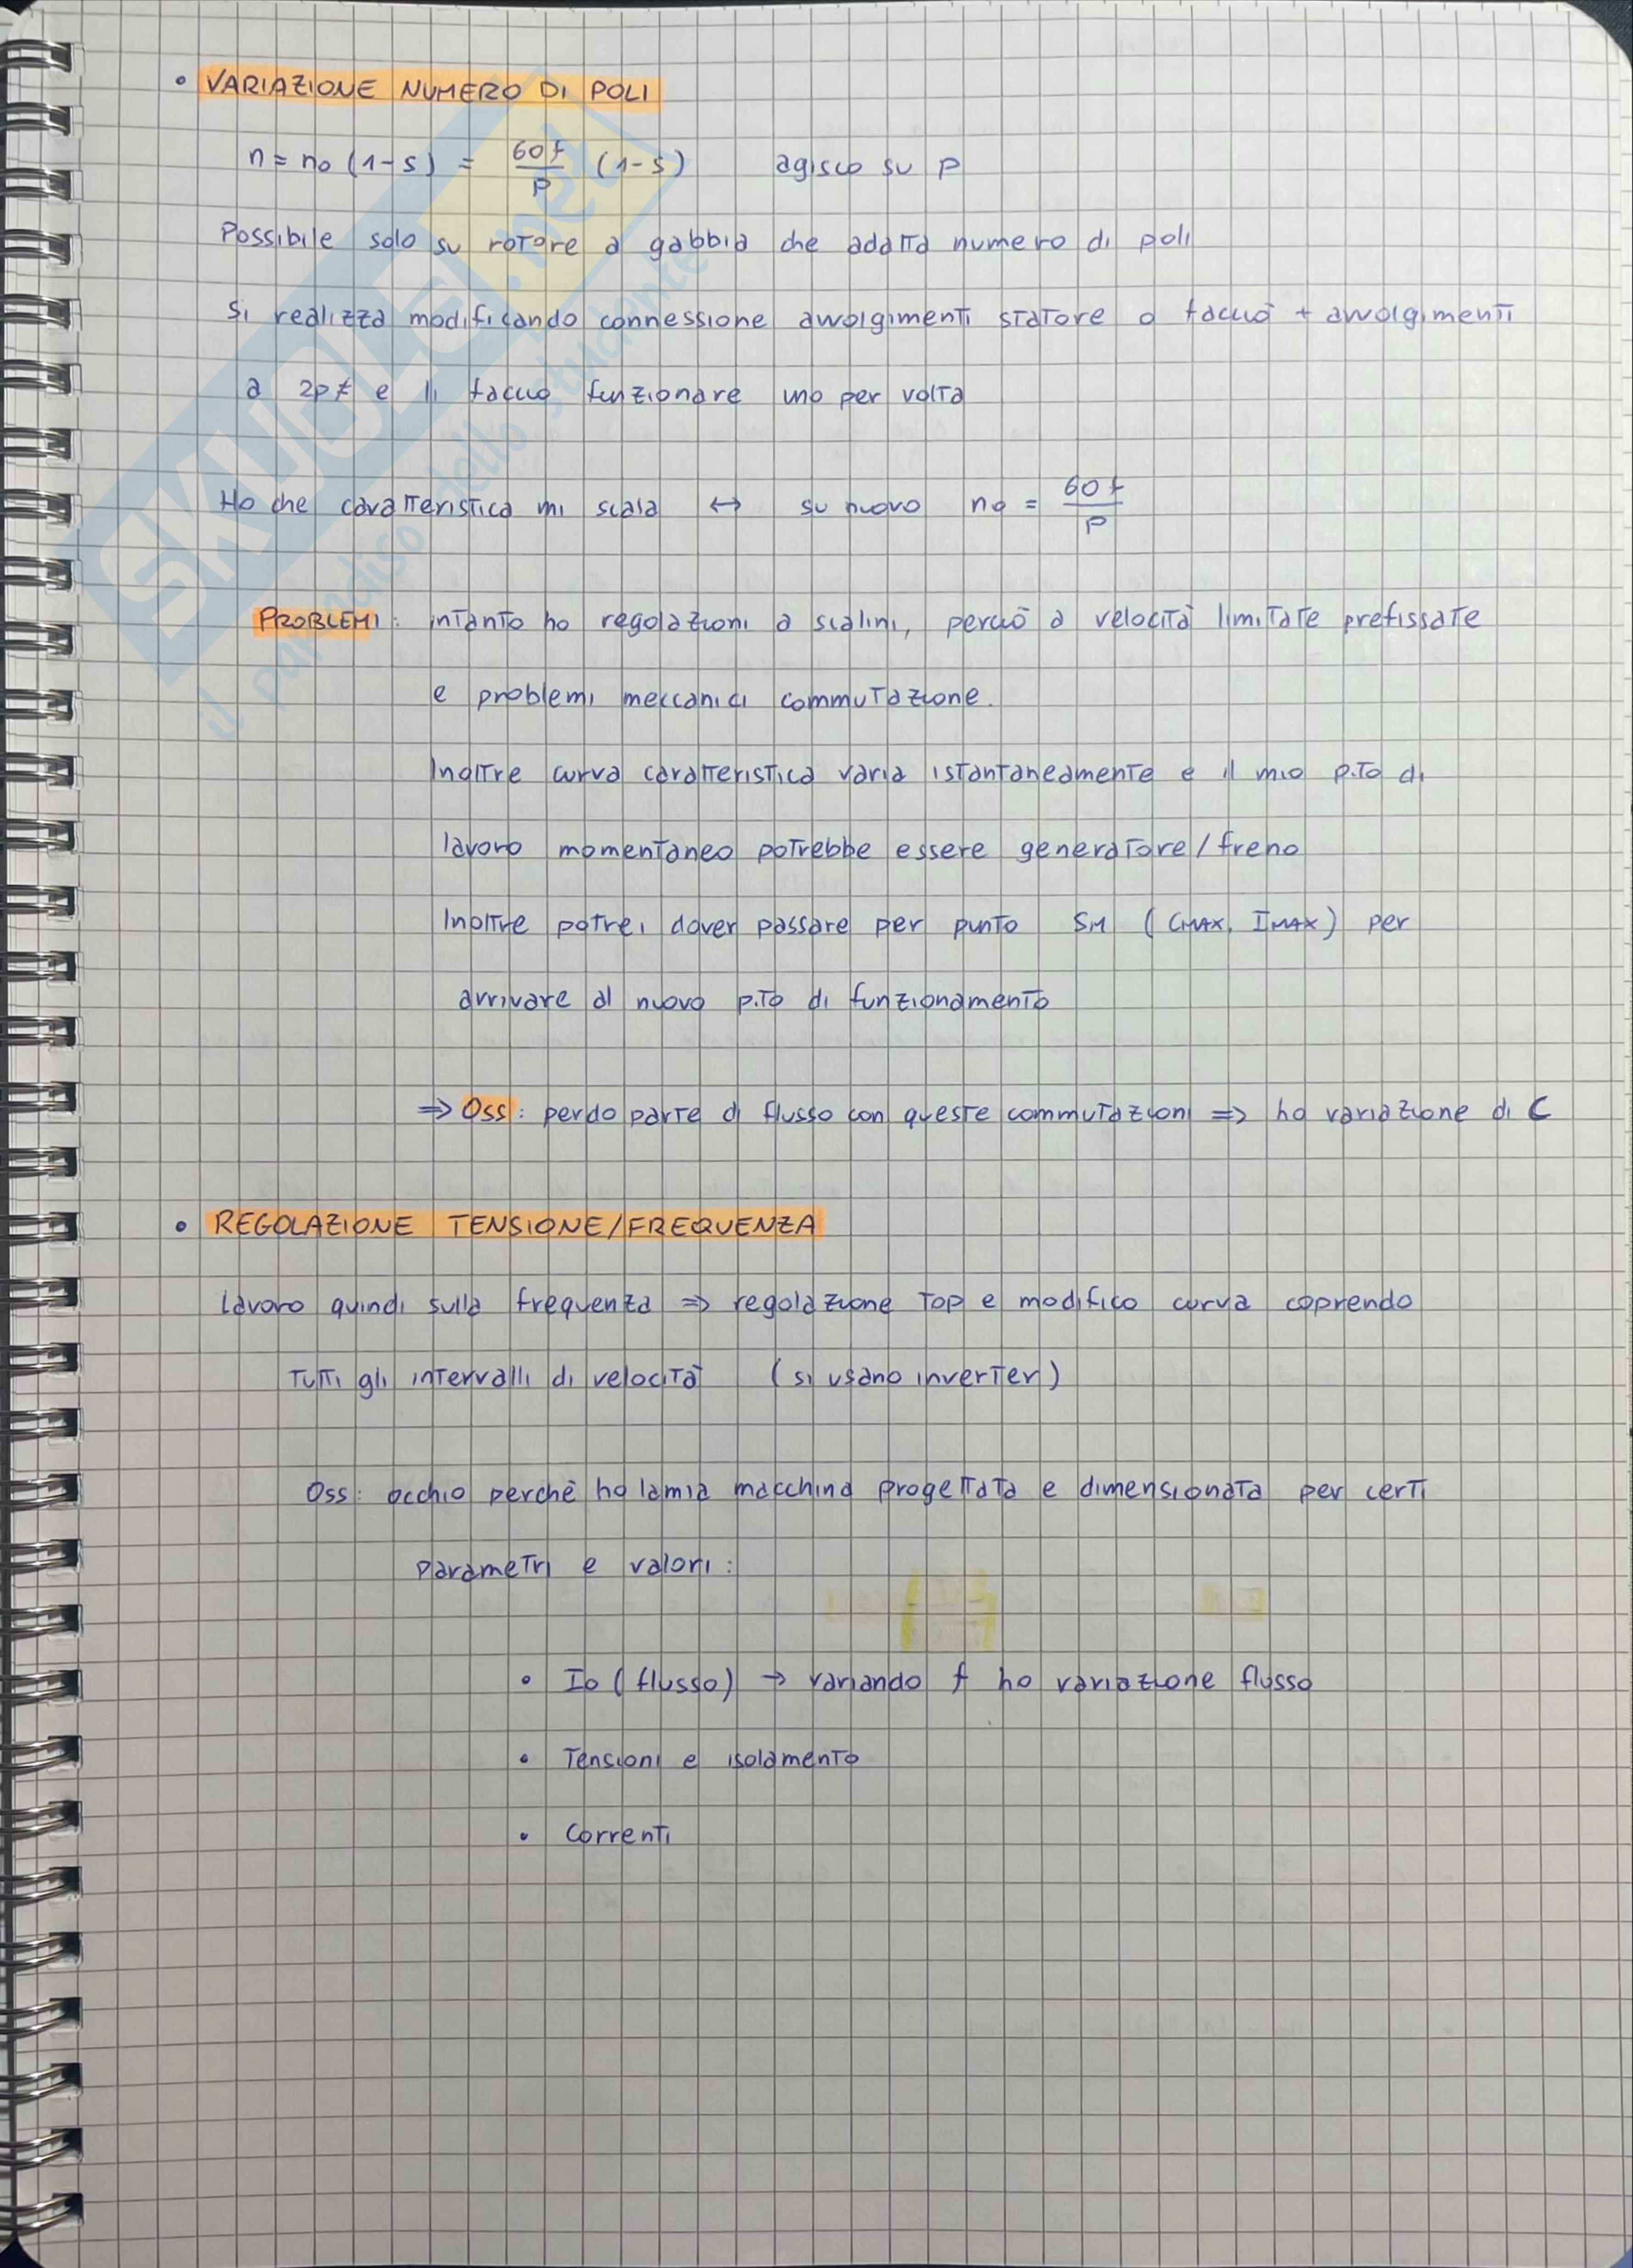 • VARIAZIONE NUMERO DI POLI
n = n₀ (1-s) = 60f/p (1-s) agisco su p
Possibile solo su rotore a gabbia che adatta numero di poli
Si realizza modificando connessione avvolgimenti statore o faccio + avvolgimenti
a 2p ≠ e li faccio funzionare uno per volta
Ho che caratteristica mi scala ↔ su nuovo n₀ = 60f/p
PROBLEMI: intanto ho regolazioni a scalini, perciò a velocità limitate prefissate
e problemi meccanici commutazione.
Inoltre curva caratteristica varia istantaneamente e il mio p.to di
lavoro momentaneo potrebbe essere generatore/freno
Inoltre potrei dover passare per punto SM (CMAX, IMAX) per
arrivare al nuovo p.to di funzionamento
⇒ Oss: perdo parte di flusso con queste commutazioni ⇒ ho variazione di C
• REGOLAZIONE TENSIONE/FREQUENZA
Lavoro quindi sulla frequenza ⇒ regolazione top e modifico curva coprendo
tutti gli intervalli di velocità (si usano inverter)
Oss: occhio perchè ho la mia macchina progettata e dimensionata per certi
parametri e valori:
• I₀ (flusso) → variando f ho variazione flusso
• Tensioni e isolamento
• Correnti
SKUOLA.net
il paradiso dello studente